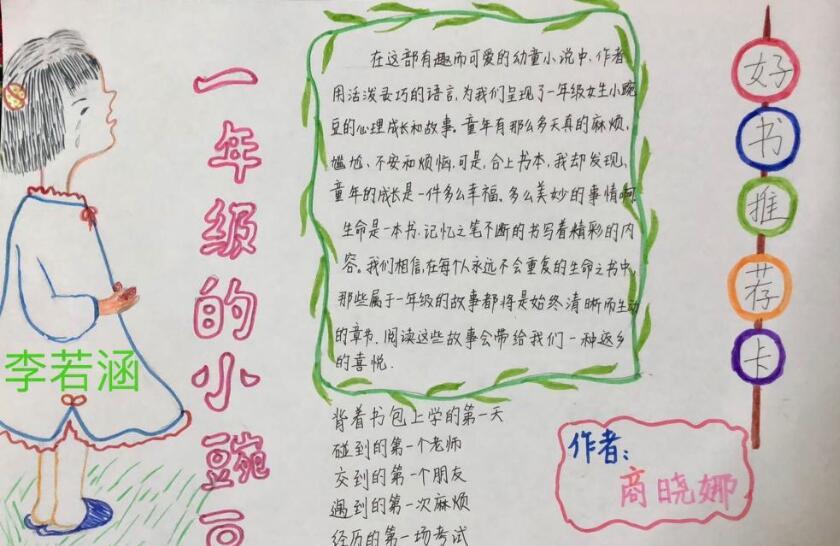 一年级的小豌豆
在这部有趣而可爱的幼童小说中,作者
用活泼灵巧的语言,为我们呈现了一年级女生小豌
豆的心理成长和故事。童年有那么多天真的麻烦、
尴尬、不安和烦恼,可是,合上书本,我却发现,
童年的成长是一件多么幸福、多么美妙的事情啊
生命是一本书,记忆之笔不断的书写着精彩的内
容。我们相信,在每个人永远不会重复的生命之书中,
那些属于一年级的故事都将是始终清晰而生动
的章节。阅读这些故事会带给我们一种返乡
的喜悦.
背着书包上学的第一天
碰到的第一个老师
交到的第一个朋友
遇到的第一次麻烦
经历的第一场考试
好书推荐卡
作者:
商晓娜
李若涵